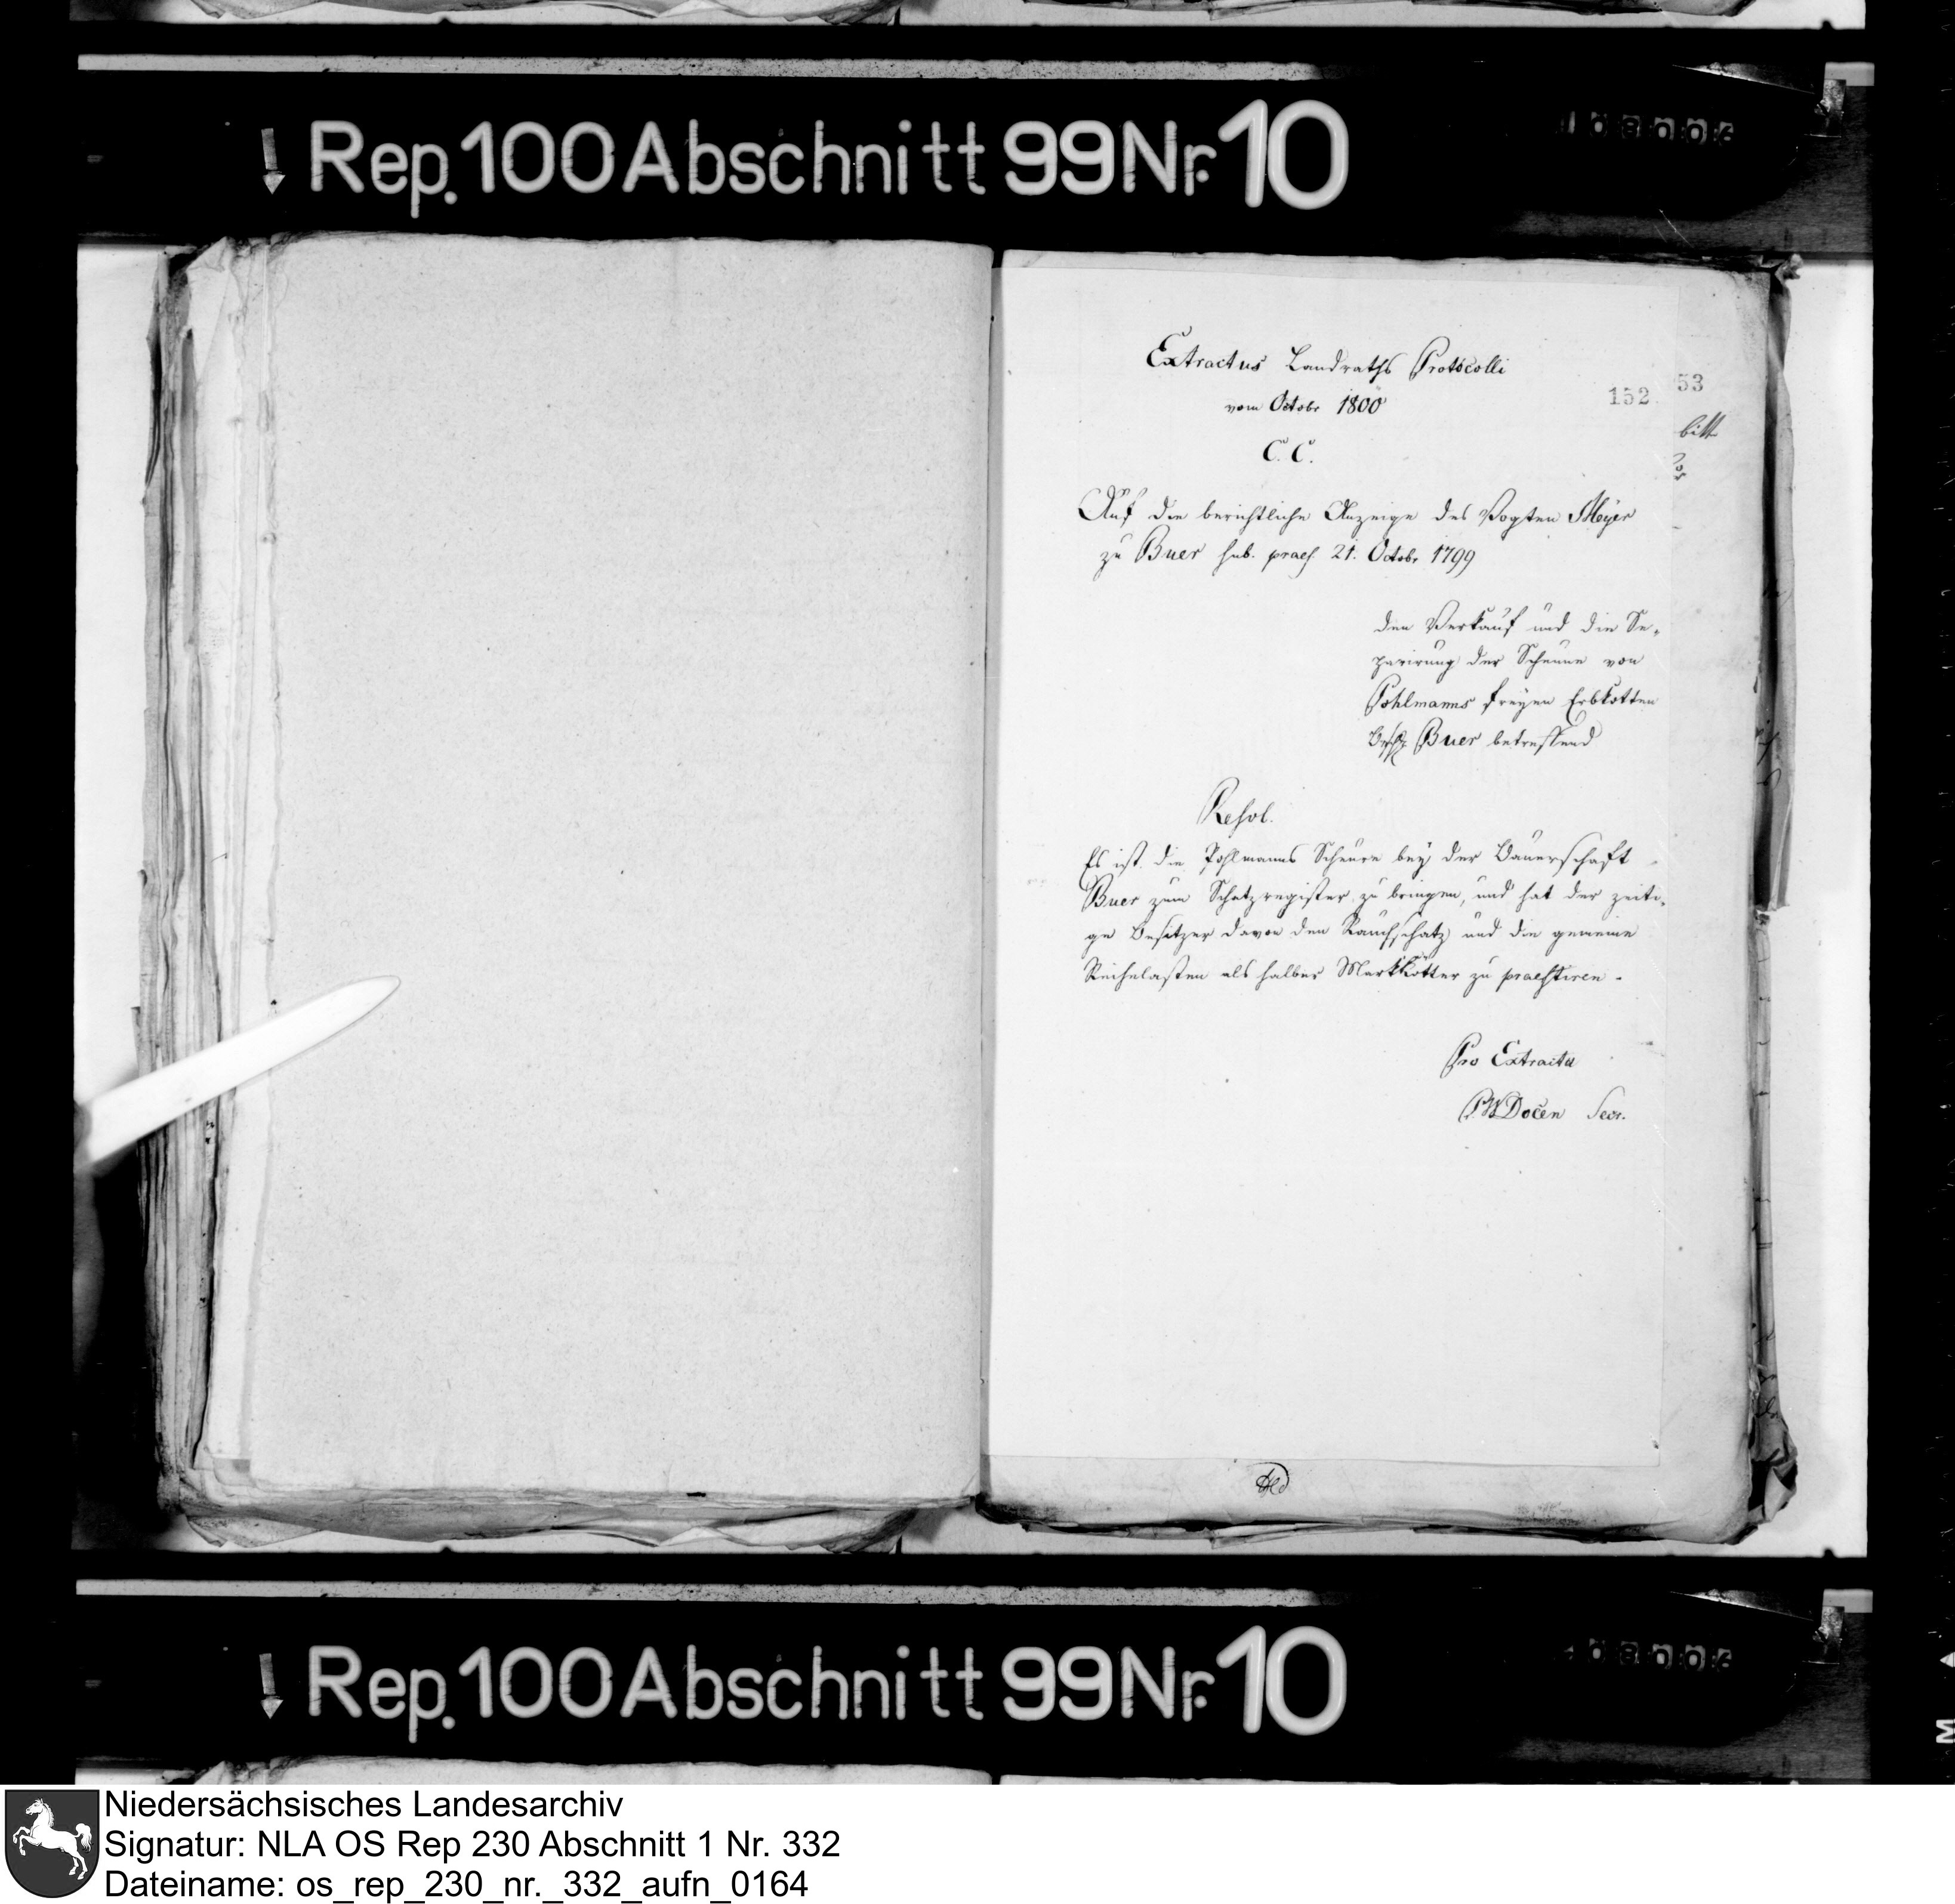 Rep. 100 Abschnitt 99 Nr. 10
Extractus Landraths Protocolli
vom Octobr 1800
152
53
bitt
C. C.
Auf die berichtliche Anzeige des Vogten Meyer
zu Buer sub. praes 21. Octobr 1799
den Verkauf und die Se-
parirung der Scheune von
Pohlmanns freyen Erbkotten
Brschft Buer betreffend
Resol.
Es ist die Pohlmanns Scheune bey der Bauerschaft
Buer zum Schatzregister zu bringen, und hat der zeiti-
ge Besitzer davon den Rauchschatz und die gemeine
Reihelasten als halber Markkötter zu praestiren.
Pro Extractu
Docen Secr.
Rep. 100 Abschnitt 99 Nr. 10
M
Niedersächsisches Landesarchiv
Signatur: NLA OS Rep 230 Abschnitt 1 Nr. 332
Dateiname: os_rep_230_nr._332_aufn_0164